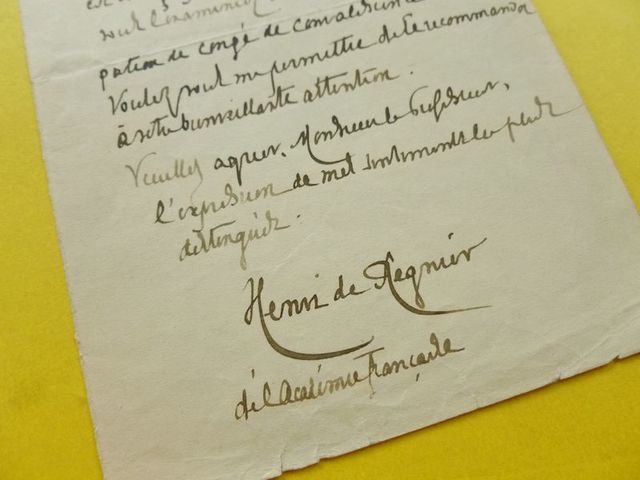 vous l'examiniez
pation de congé de convalescence
Voulez vous me permettre de le recommander
à votre bienveillante attention.
Veuillez agréer, Monsieur le Professeur,
l'expression de mes sentiments les plus
distingués.
Henri de Régnier
de l'Académie française